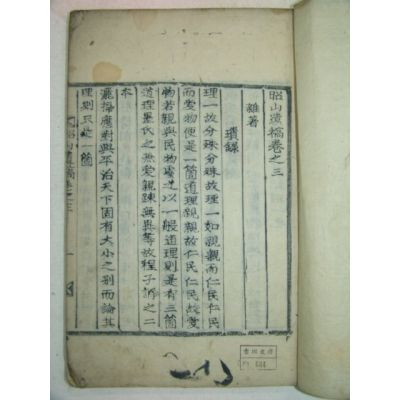 昭山遺稿卷之三
雜著
瑣錄
理一故分殊分殊故理一如親親而仁民仁民
而愛物便是一箇道理親親故仁民仁民故愛
物若親與民物處之以一般道理則是有三箇
道理墨氏之兼愛親踈無異等故程子謂之二
本
灑掃應對與平治天下固有大小之別而論其
理則只是一箇
昭山遺稿卷之三 一